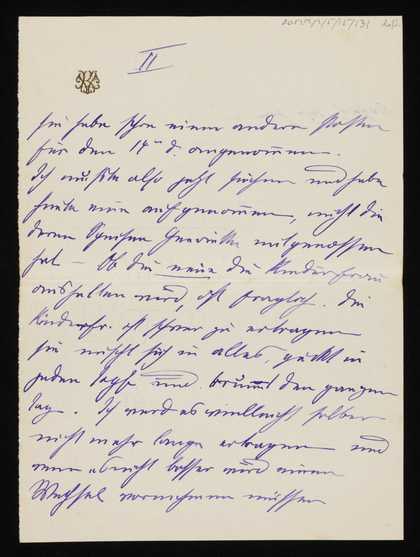 II
sie habe schon einen andern Posten
für den 14ten d. angenommen.
Ich mußte also jetzt suchen und habe
heute eine aufgenommen, nicht die
deren Speisen Gewirke mitgenossen
hat – Ob die neue die Kinderfrau
aushalten wird, ist fraglich. Die
Kinderfr. ist schwer zu ertragen
sie mischt sich in alles, guckt in
jeden Topf und brummt den ganzen
Tag. Ich werd es vielleicht selber
nicht mehr lange ertragen und
wenn es nicht besser wird einen
Wechsel vornehmen müssen